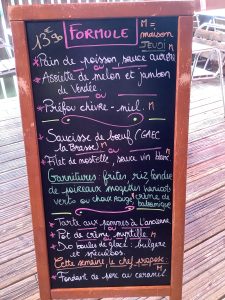 13€50
FORMULE
M = maison
JEUDI
* Pain de poisson, sauce aurore
ou
* Assiette de melon et jambon
de Vendée
ou
* Préfou chèvre - miel. M
* Saucisse de bœuf (GAEC
la Brasse) M
ou
* Filet de mostelle, sauce vin blanc. M
Garnitures: frites, riz, fondue
de poireaux, mogettes, haricots
verts ou choux rouge, crème de
balsamique
* Tarte aux pommes à l'ancienne
ou
* Pot de crème myrtille M
* Duo boules de glace: bulgare
et spéculoos.
Cette semaine, le chef propose:
M
* Fondant de porc au caramel